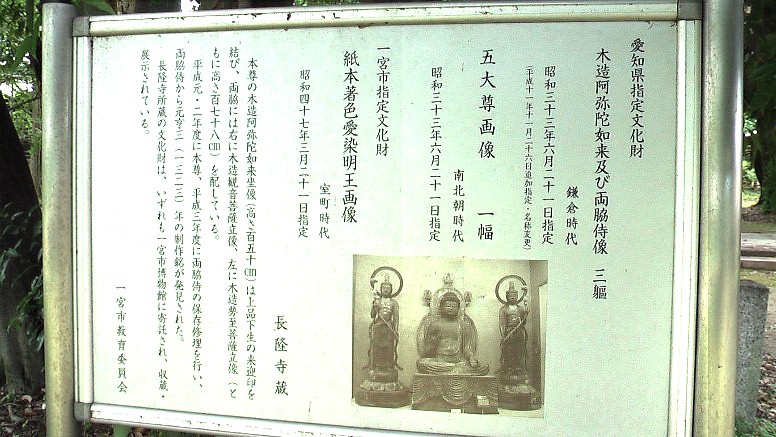 愛知県指定文化財
木造阿弥陀如来及び両脇侍像　三軀
鎌倉時代
昭和三十三年六月二十一日指定
（平成十一年十一月二十六日追加指定・名称変更）
五大尊画像　一幅
南北朝時代
昭和三十三年六月二十一日指定
一宮市指定文化財
紙本著色愛染明王画像
室町時代
昭和四十七年三月二十一日指定
長隆寺蔵
本尊の木造阿弥陀如来坐像（高さ百五十㎝）は上品下生の来迎印を
結び、両脇には右に木造観音菩薩立像、左に木造勢至菩薩立像（と
もに高さ百七十八㎝）を配している。
平成元・二年度に本尊、平成三年度に両脇侍の保存修理を行い、
両脇侍から元亨三（一三二三）年の制作銘が発見された。
長隆寺所蔵の文化財は、いずれも一宮市博物館に寄託され、収蔵・
展示されている。
一宮市教育委員会